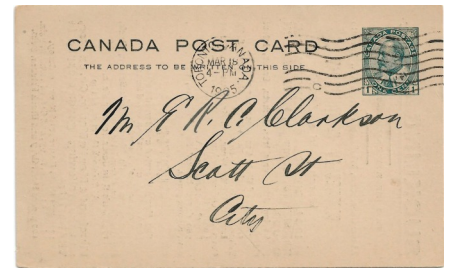 CANADA POST CARD
THE ADDRESS TO BE WRITTEN THIS SIDE
TORONTO CANADA
MAR 15
4-PM
1905
CANADA POSTAGE
ONE CENT
Mr E R. C. Clarkson
Scott St
City